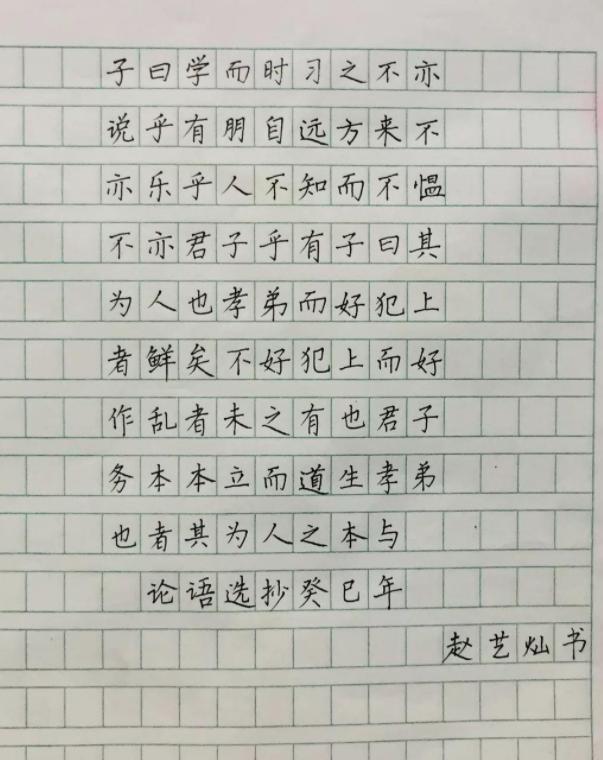 子曰学而时习之不亦
说乎有朋自远方来不
亦乐乎人不知而不愠
不亦君子乎有子曰其
为人也孝弟而好犯上
者鲜矣不好犯上而好
作乱者未之有也君子
务本本立而道生孝弟
也者其为人之本与
论语选抄癸巳年
赵艺灿书